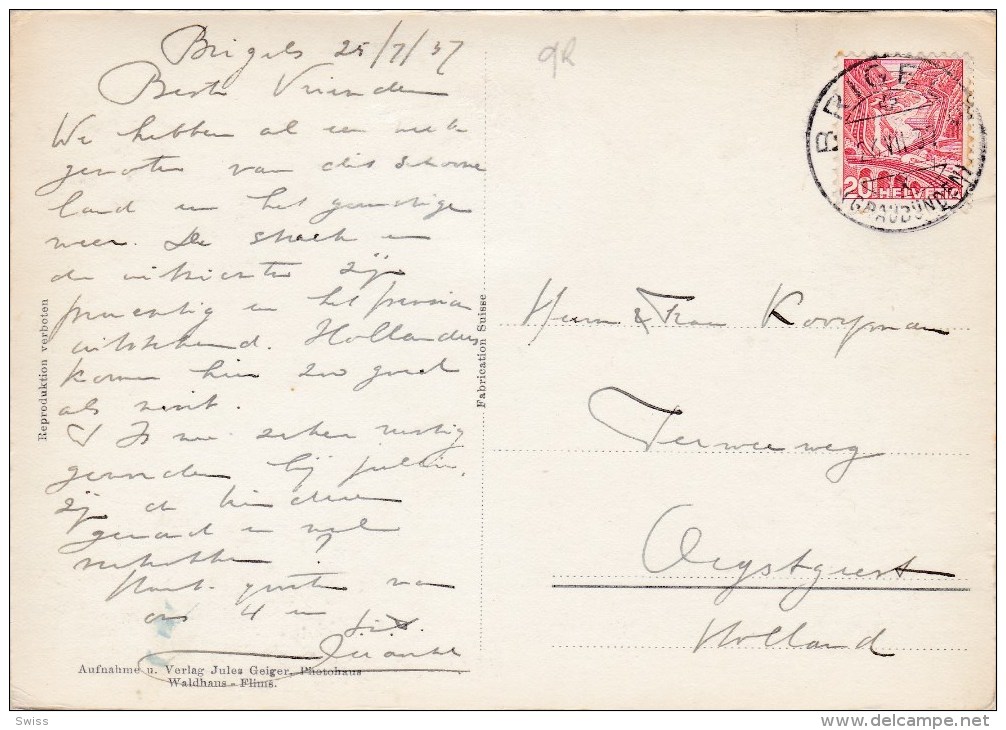 Brigels 25/7/37
Beste Vrienden
We hebben al een week
genoten van dit schoone
land en het gunstige
weer. De streek en
de uitzichten zijn
prachtig en het pension
uitstekend. Hollanders
komen hier zoo goed
als nooit.
Is nu zeker rustig
geworden bij jullie,
zijn de kinderen
gezond en wel
vertrokken?
Hart. groeten van
ons 4 en
Reproduktion verboten
Fabrication Suisse
Aufnahme u. Verlag Jules Geiger, Photohaus
Waldhaus - Flims.
BRIGELS
VII
(GRAUBÜNDEN)
20 HELVETIA
Herrn & Frau Kooyman
Terweeweg
Oegstgeest
Holland
Swiss
www.delcampe.net